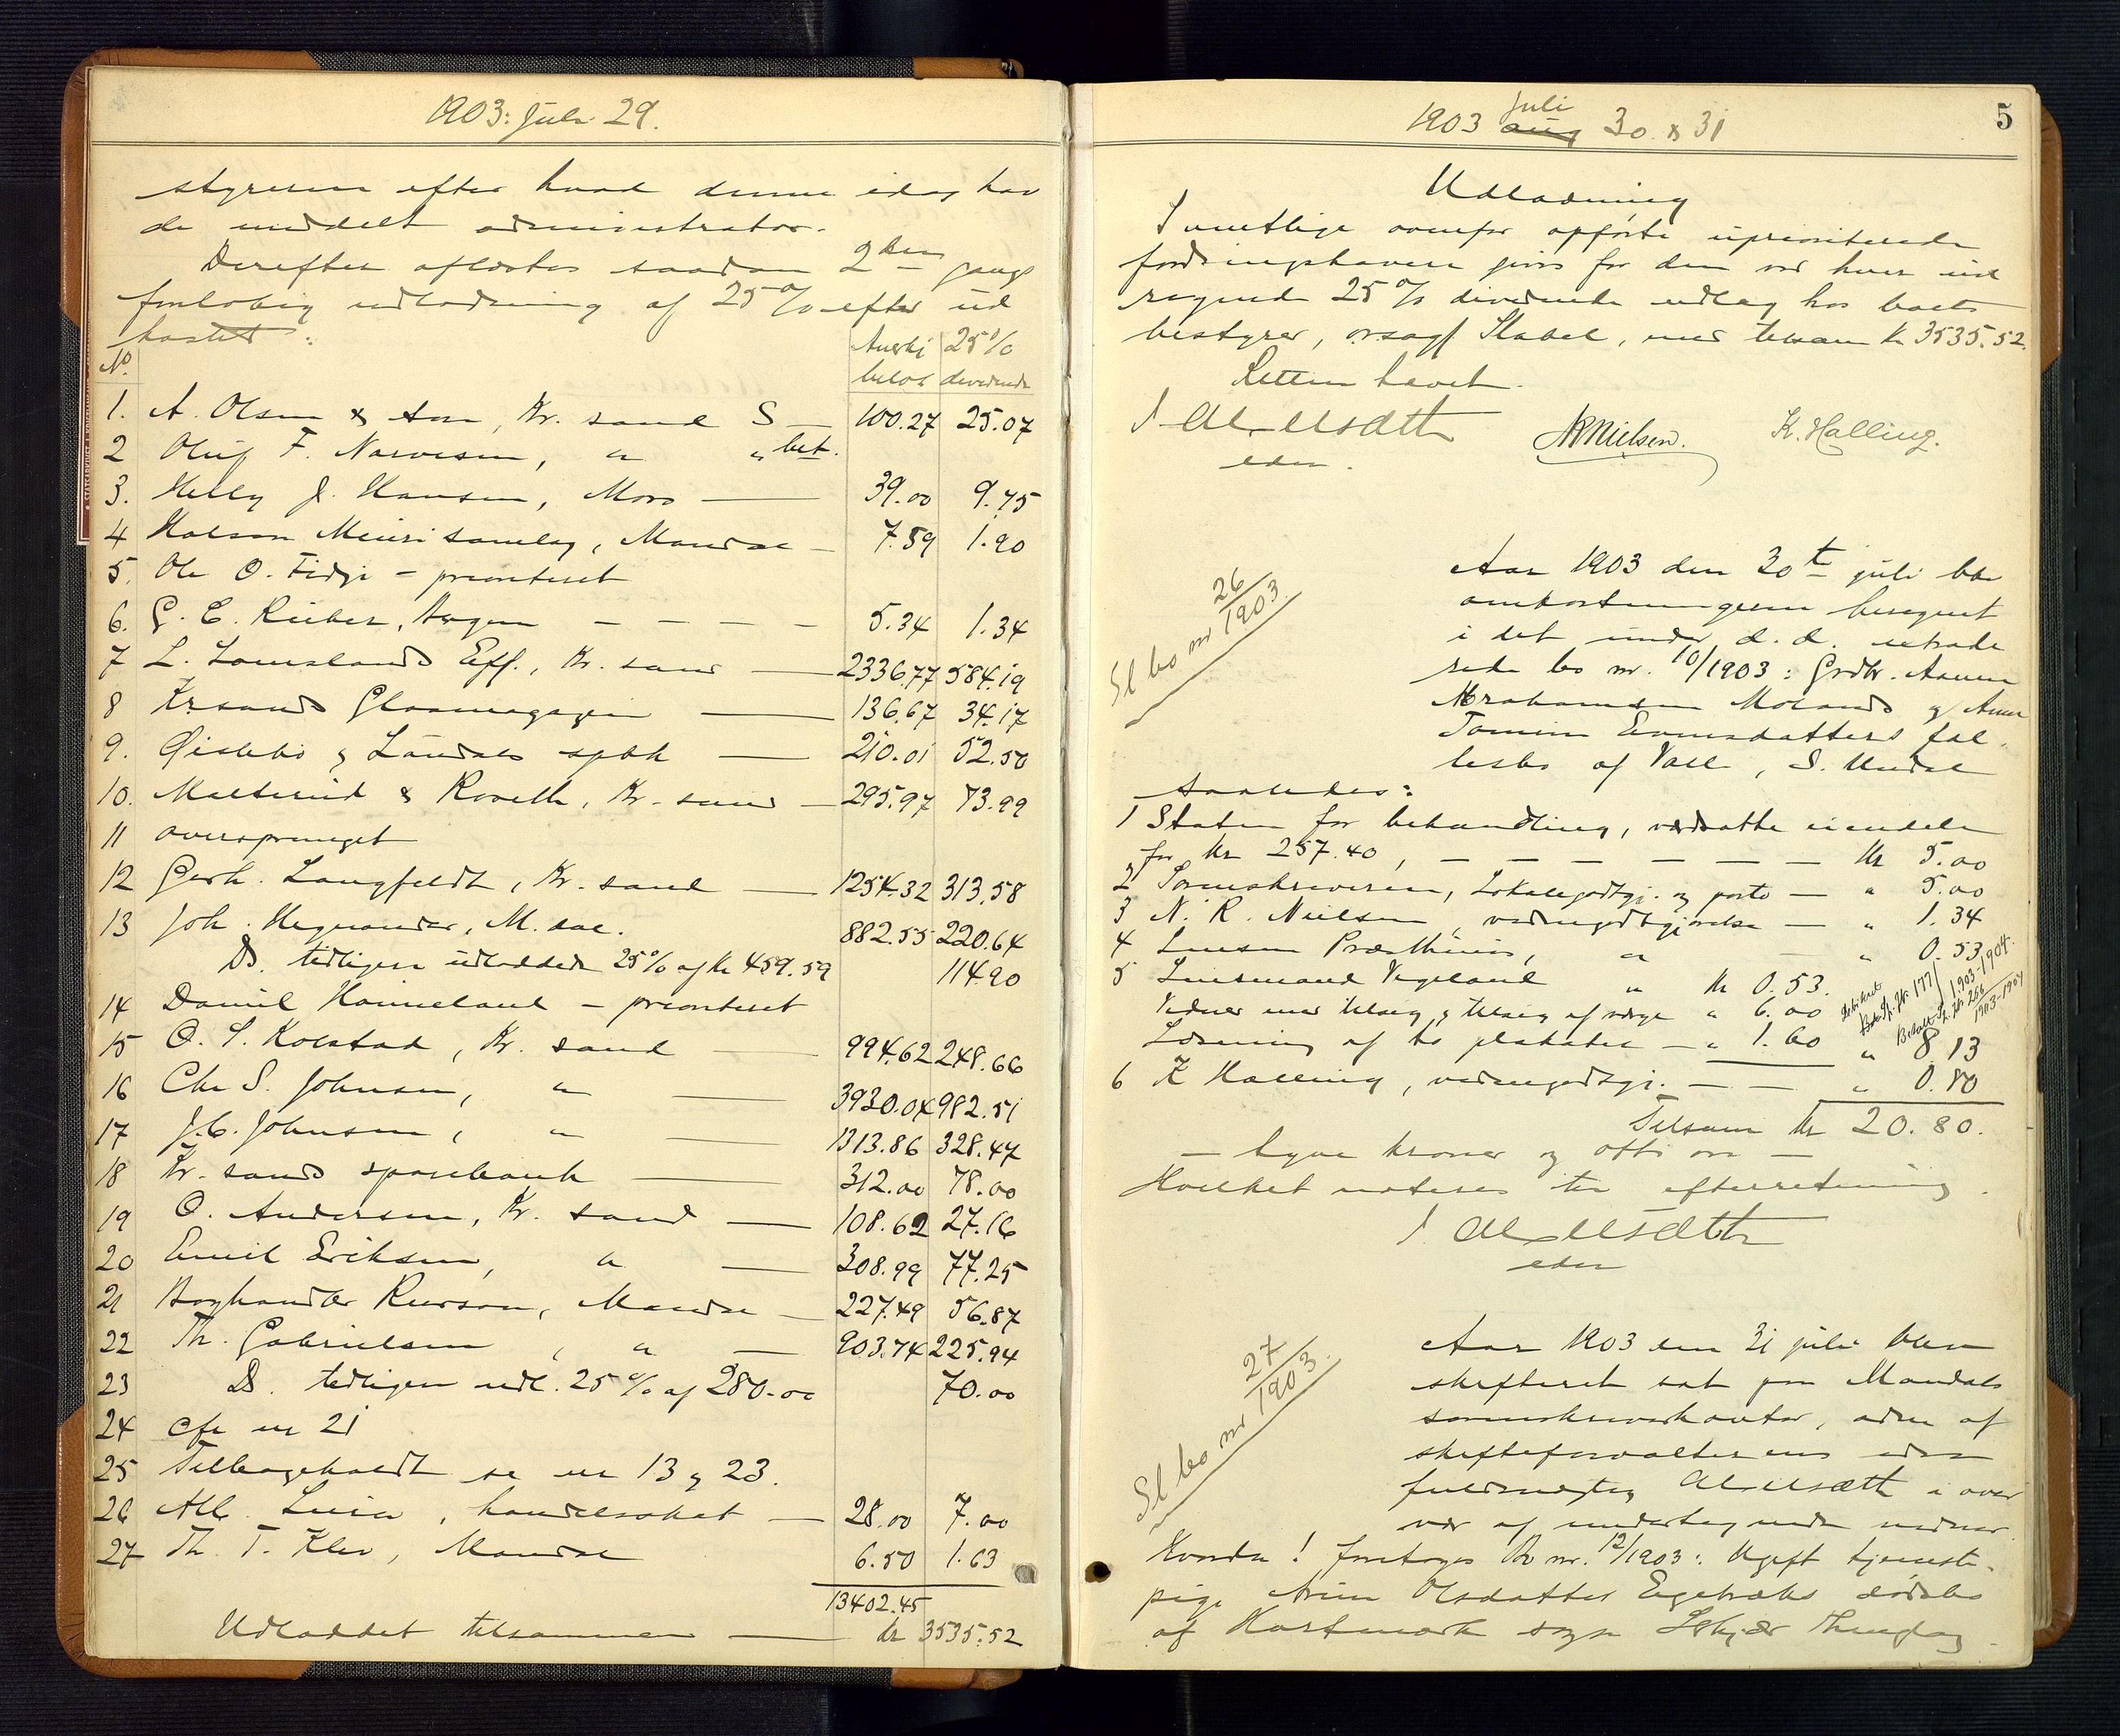 1903: Juli 29.
styreren efter hvad denne idag hav
de meddelt administrator.
Derefter afloktes saadan 2den gangs
foreløbig udlodning af 25% efter ud
kastet:
No. Anerkj beløb 25% dividende
1. A. Olsen & Søn, Kr. sand S — 100.27 25.07
2 Oluf F. Narvesen, " " bet.
3. Helly J. Hansen, Moss — 39.00 9.75
4 Holson Meieri samlag, Mandal — 7.59 1.90
5. Ole O. Fidje - prioriteret
6. G. C. Rieber, Bergen — — — — 5.34 1.34
7 L. Lomelands Eff., Kr. sand — 2336.77 584.19
8 Krsands Glasmagazin — 136.67 34.17
9. Øislebø & Laudals spbk — 210.01 52.50
10. & Roveth, Kr. sand — 295.97 73.99
11 oversprunget
12 Gerh. Langfeldt, Kr. sand — 1254.32 313.58
13 Joh. M. dal. 882.55 220.64
Do. tidligere udloddede 25% af kr 459.59 114.90
14 Daniel Homeland - prioriteret
15 O. S. Kolstad, Kr. sand — 994.62 248.66
16 Chr S. Johnsen, " — 3930.04 982.51
17 J. C. Johnsen, " — 1313.86 328.47
18 Kr. sands sparebank — 312.00 78.00
19 O. Andersen, Kr. sand — 108.62 27.16
20 Emil Eriksen, " — 308.99 77.25
21 Boghandler Mandal — 227.49 56.87
22 Th. Gabrielsen, " — 903.74 225.94
23 Do. tidligere udl. 25% af 280.00 70.00
24 cfr nr 21
25 Tilbageholdt se nr 13 & 23.
26 Alb. handelsskat — 28.00 7.00
27 Th. T. Klev, Mandal 6.50 1.63
13402.45
Udloddet tilsammen — kr 3535.52
1903 aug Juli 30. & 31
5
Udlodning
Samtlige ovenfor opførte uprioriterede
fordringshavere gives for den ved hver ud
regnede 25% dividende udlæg hos boets
bestyrer, orsagf Stabel, med tilsam kr 3535.52.
Retten hævet.
eden.
NRNielsen. K. Halling.
Sl bo nr 26/1903
Aar 1903 den 30te juli ble
omkostningerne beregnet
i det under d. d. extrade
rede bo nr. 10/1903: Grdbr. Aanen
Abrahamsen Molands og Anne
Tomine fæl
lesbo af Valle, S. Undal
saaledes:
1 Staten for behandling, værdsatte eiendele
for kr 257.40, — — — — — — kr 5.00
2 Sorenskriveren, Lokalegodtgj. og porto — " 5.00
3 N. R. Nielsen, vidnegodtgjørelse — " 1.34
4 Lensm Præsthuus, " — " 0.53
5 Lensmand Vigeland " kr 0.53.
Vidner med tilsig & tilsig af værge " 6.00
Løsning af to plakater — " 1.60 " 8.13
Betalt 1903-1904.
1903-1904
6 K Halling, vidnegodtgj. — — " 0.80
Tilsam kr 20.80.
— tyve kroner og otti øre —
Hvilket noteres til efterretning.
eden
Sl bo nr 27/1903.
Aar 1903 den 31 juli blev
skifteret sat paa Mandals
sorenskriverkontor, adm af
skifteforvalterens edsv
fuldmægtig i over
vær af undertegnede vidner.
Hvorda! foretoges Bo nr. 12/1903: Ugift tjeneste-
pige Olsdatter Egebæks dødsbo
af Hartmark sogn thinglag.